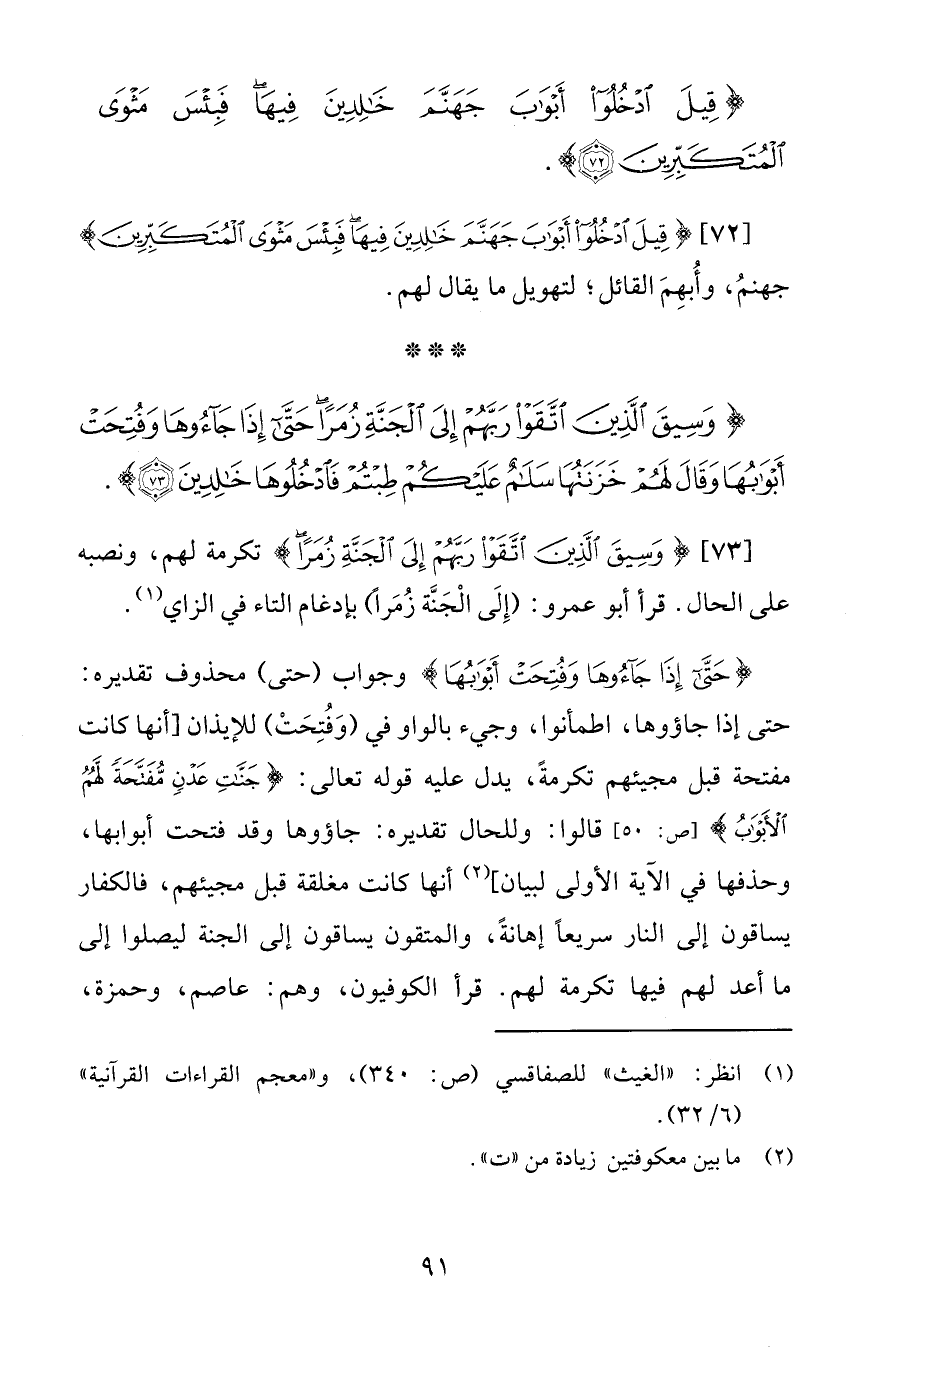 ﴿قِيلَ ٱدْخُلُوٓا۟ أَبْوَٰبَ جَهَنَّمَ خَٰلِدِينَ فِيهَا ۖ فَبِئْسَ مَثْوَى
ٱلْمُتَكَبِّرِينَ ﴿٧٢﴾﴾.
[٧٢] ﴿قِيلَ ٱدْخُلُوٓا۟ أَبْوَٰبَ جَهَنَّمَ خَٰلِدِينَ فِيهَا ۖ فَبِئْسَ مَثْوَى ٱلْمُتَكَبِّرِينَ﴾
جهنمُ، وأُبهِمَ القائل؛ لتهويل ما يقال لهم.
* * *
﴿وَسِيقَ ٱلَّذِينَ ٱتَّقَوْا۟ رَبَّهُمْ إِلَى ٱلْجَنَّةِ زُمَرًا ۖ حَتَّىٰٓ إِذَا جَآءُوهَا وَفُتِحَتْ
أَبْوَٰبُهَا وَقَالَ لَهُمْ خَزَنَتُهَا سَلَٰمٌ عَلَيْكُمْ طِبْتُمْ فَٱدْخُلُوهَا خَٰلِدِينَ ﴿٧٣﴾﴾.
[٧٣] ﴿وَسِيقَ ٱلَّذِينَ ٱتَّقَوْا۟ رَبَّهُمْ إِلَى ٱلْجَنَّةِ زُمَرًا ۖ﴾ تكرمة لهم، ونصبه
على الحال. قرأ أبو عمرو: (إِلَى الْجَنَّة زُمَراً) بإدغام التاء في الزاي(١).
﴿حَتَّىٰٓ إِذَا جَآءُوهَا وَفُتِحَتْ أَبْوَٰبُهَا﴾ وجواب (حتى) محذوف تقديره:
حتى إذا جاؤوها، اطمأنوا، وجيء بالواو في (وَفُتِحَتْ) للإيذان [أنها كانت
مفتحة قبل مجيئهم تكرمةً، يدل عليه قوله تعالى: ﴿جَنَّٰتِ عَدْنٍ مُّفَتَّحَةً لَّهُمُ
ٱلْأَبْوَٰبُ﴾ [ص: ٥٠] قالوا: وللحال تقديره: جاؤوها وقد فتحت أبوابها،
وحذفها في الآية الأولى لبيان](٢) أنها كانت مغلقة قبل مجيئهم، فالكفار
يساقون إلى النار سريعاً إهانةً، والمتقون يساقون إلى الجنة ليصلوا إلى
ما أعد لهم فيها تكرمة لهم. قرأ الكوفيون، وهم: عاصم، وحمزة،
(١) انظر: «الغيث» للصفاقسي (ص: ٣٤٠)، و«معجم القراءات القرآنية»
(٦/ ٣٢).
(٢) ما بين معكوفتين زيادة من «ت».
٩١